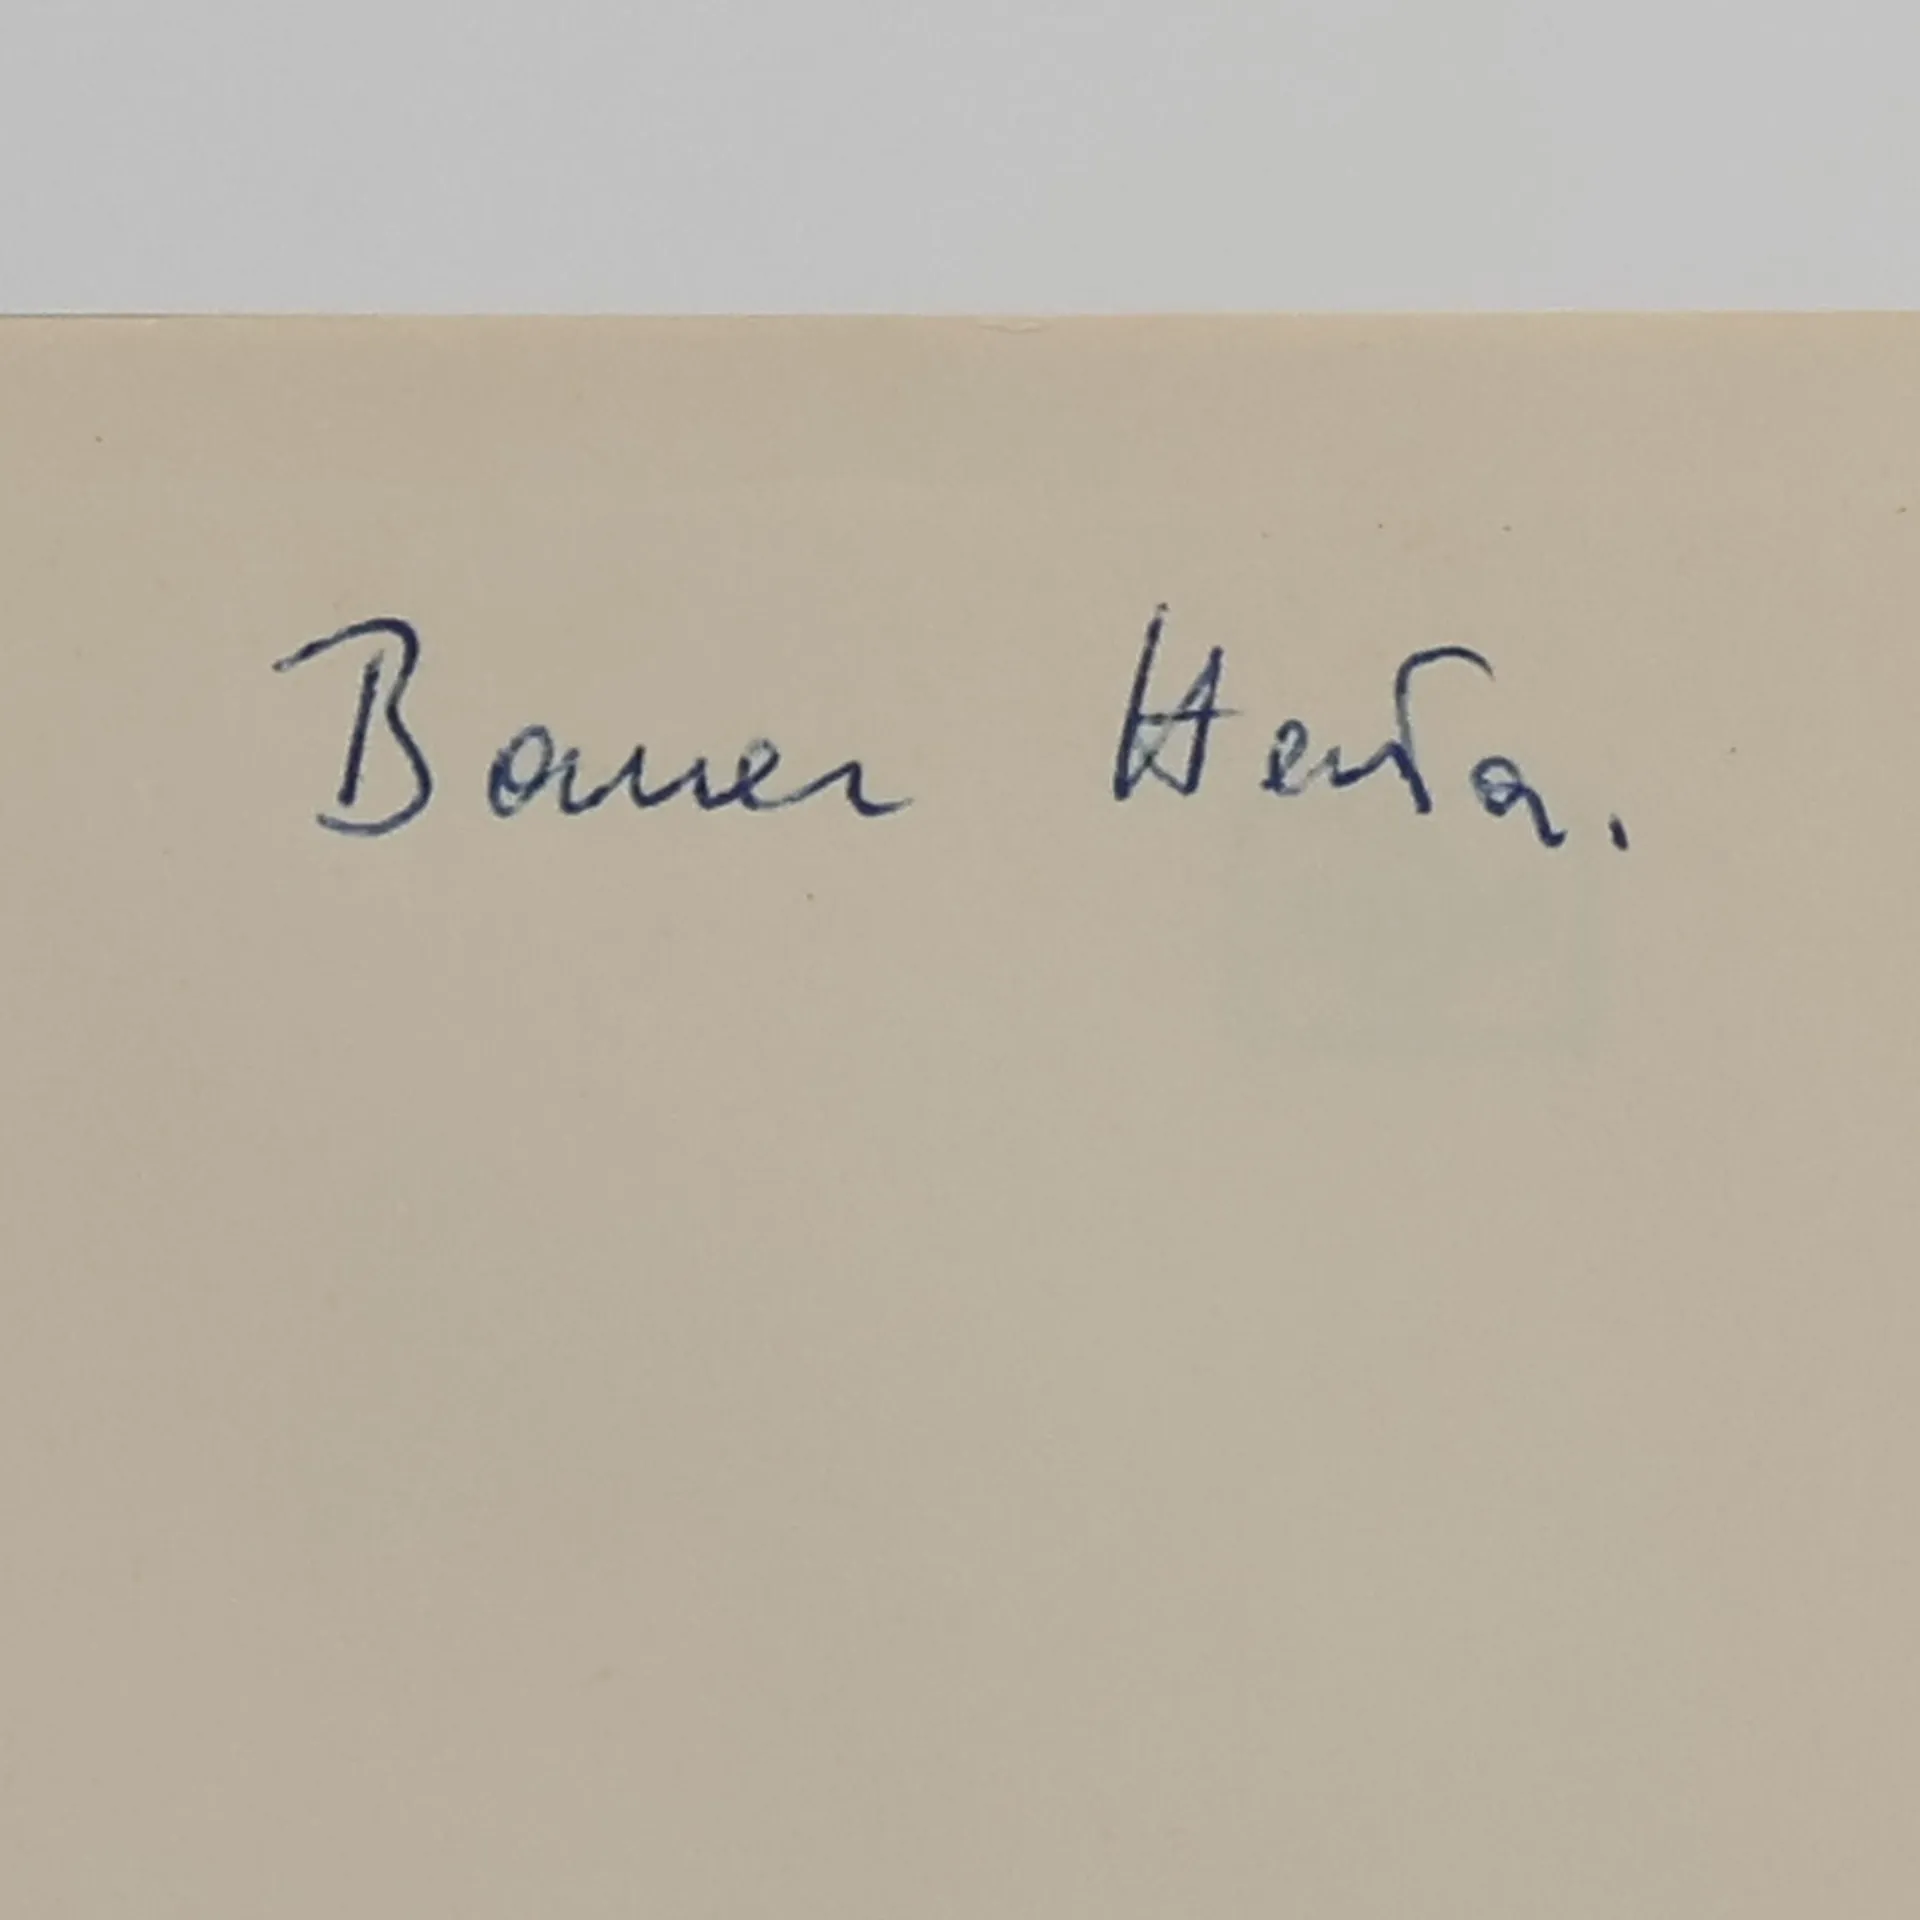 Bauer Herta.